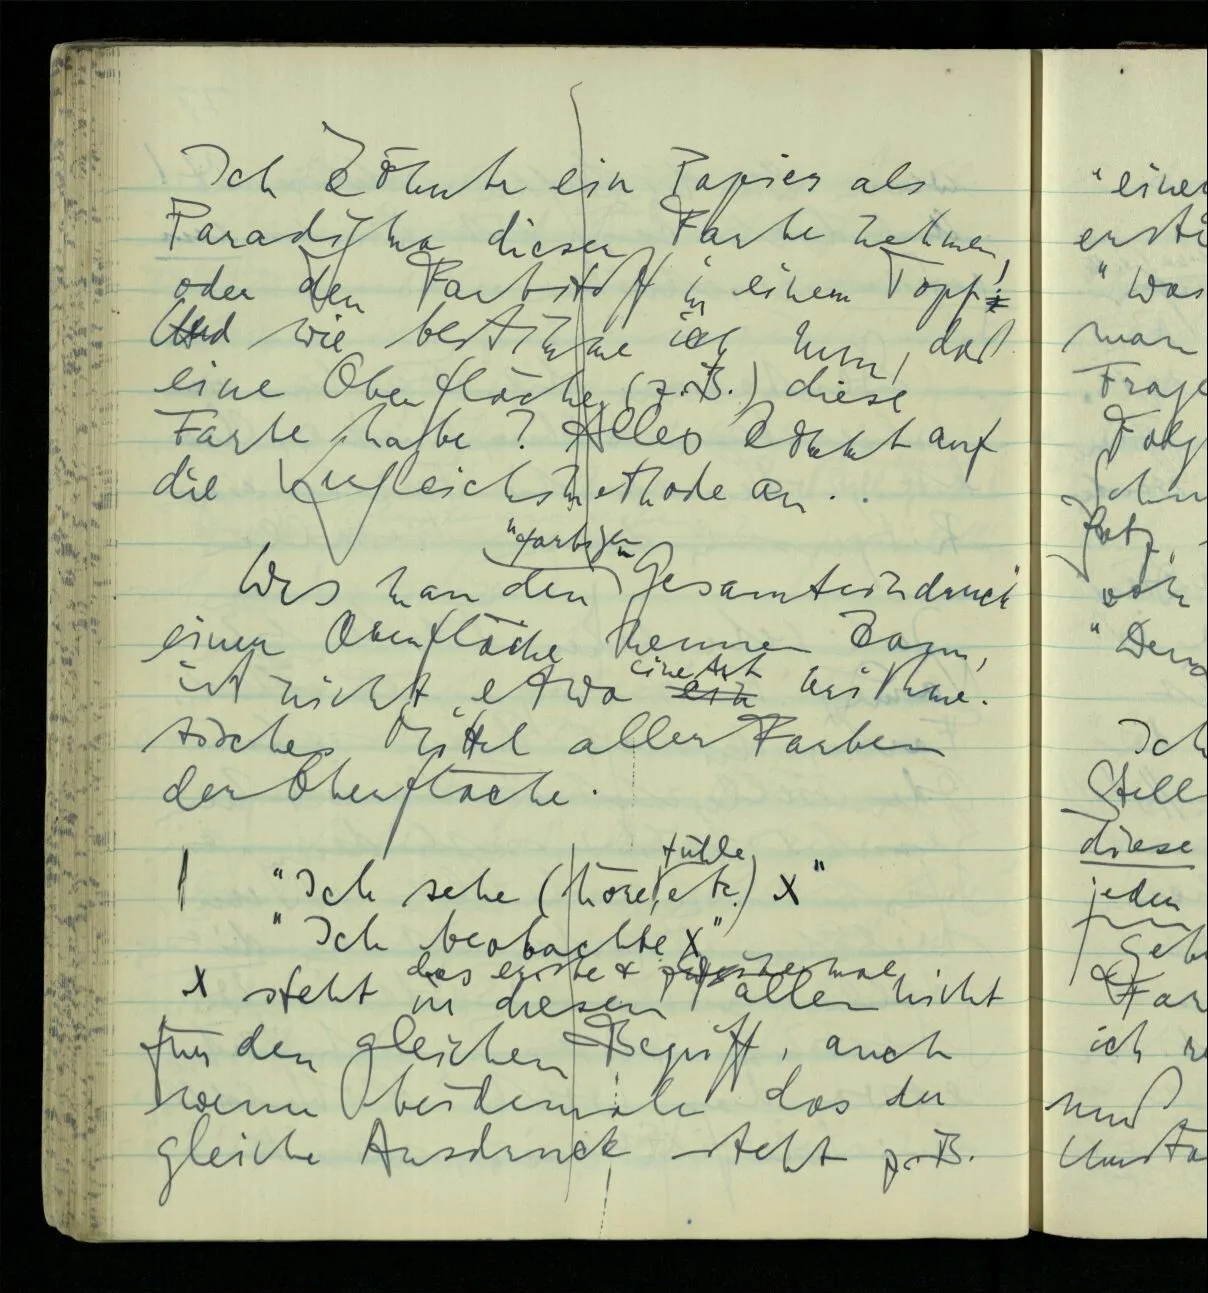 Ich könnte ein Papier als
Paradigma dieser Farbe nehmen,
oder den Farbstoff in einem Topf.
Und wie bestimme ich nun, daß
eine Oberfläche (z.B.) diese
Farbe habe? Alles kommt auf
die Vergleichsmethode an..
"farbigen"
Was man den Gesamteindruck
einer Oberfläche nennen kann,
eine Art
ist nicht etwa ein arithme-
tisches Mittel aller Farben
der Oberfläche.
fühle
"Ich sehe (höre, etc.) X"
"Ich beobachte X"
das erste & zweite mal
X steht in diesen Fällen nicht
für den gleichen Begriff, auch
wenn beidemale das der
gleiche Ausdruck steht z.B.
"einer
"Was
man
Frage
"Denn
Ich
Stell
diese
jeden
ich
und